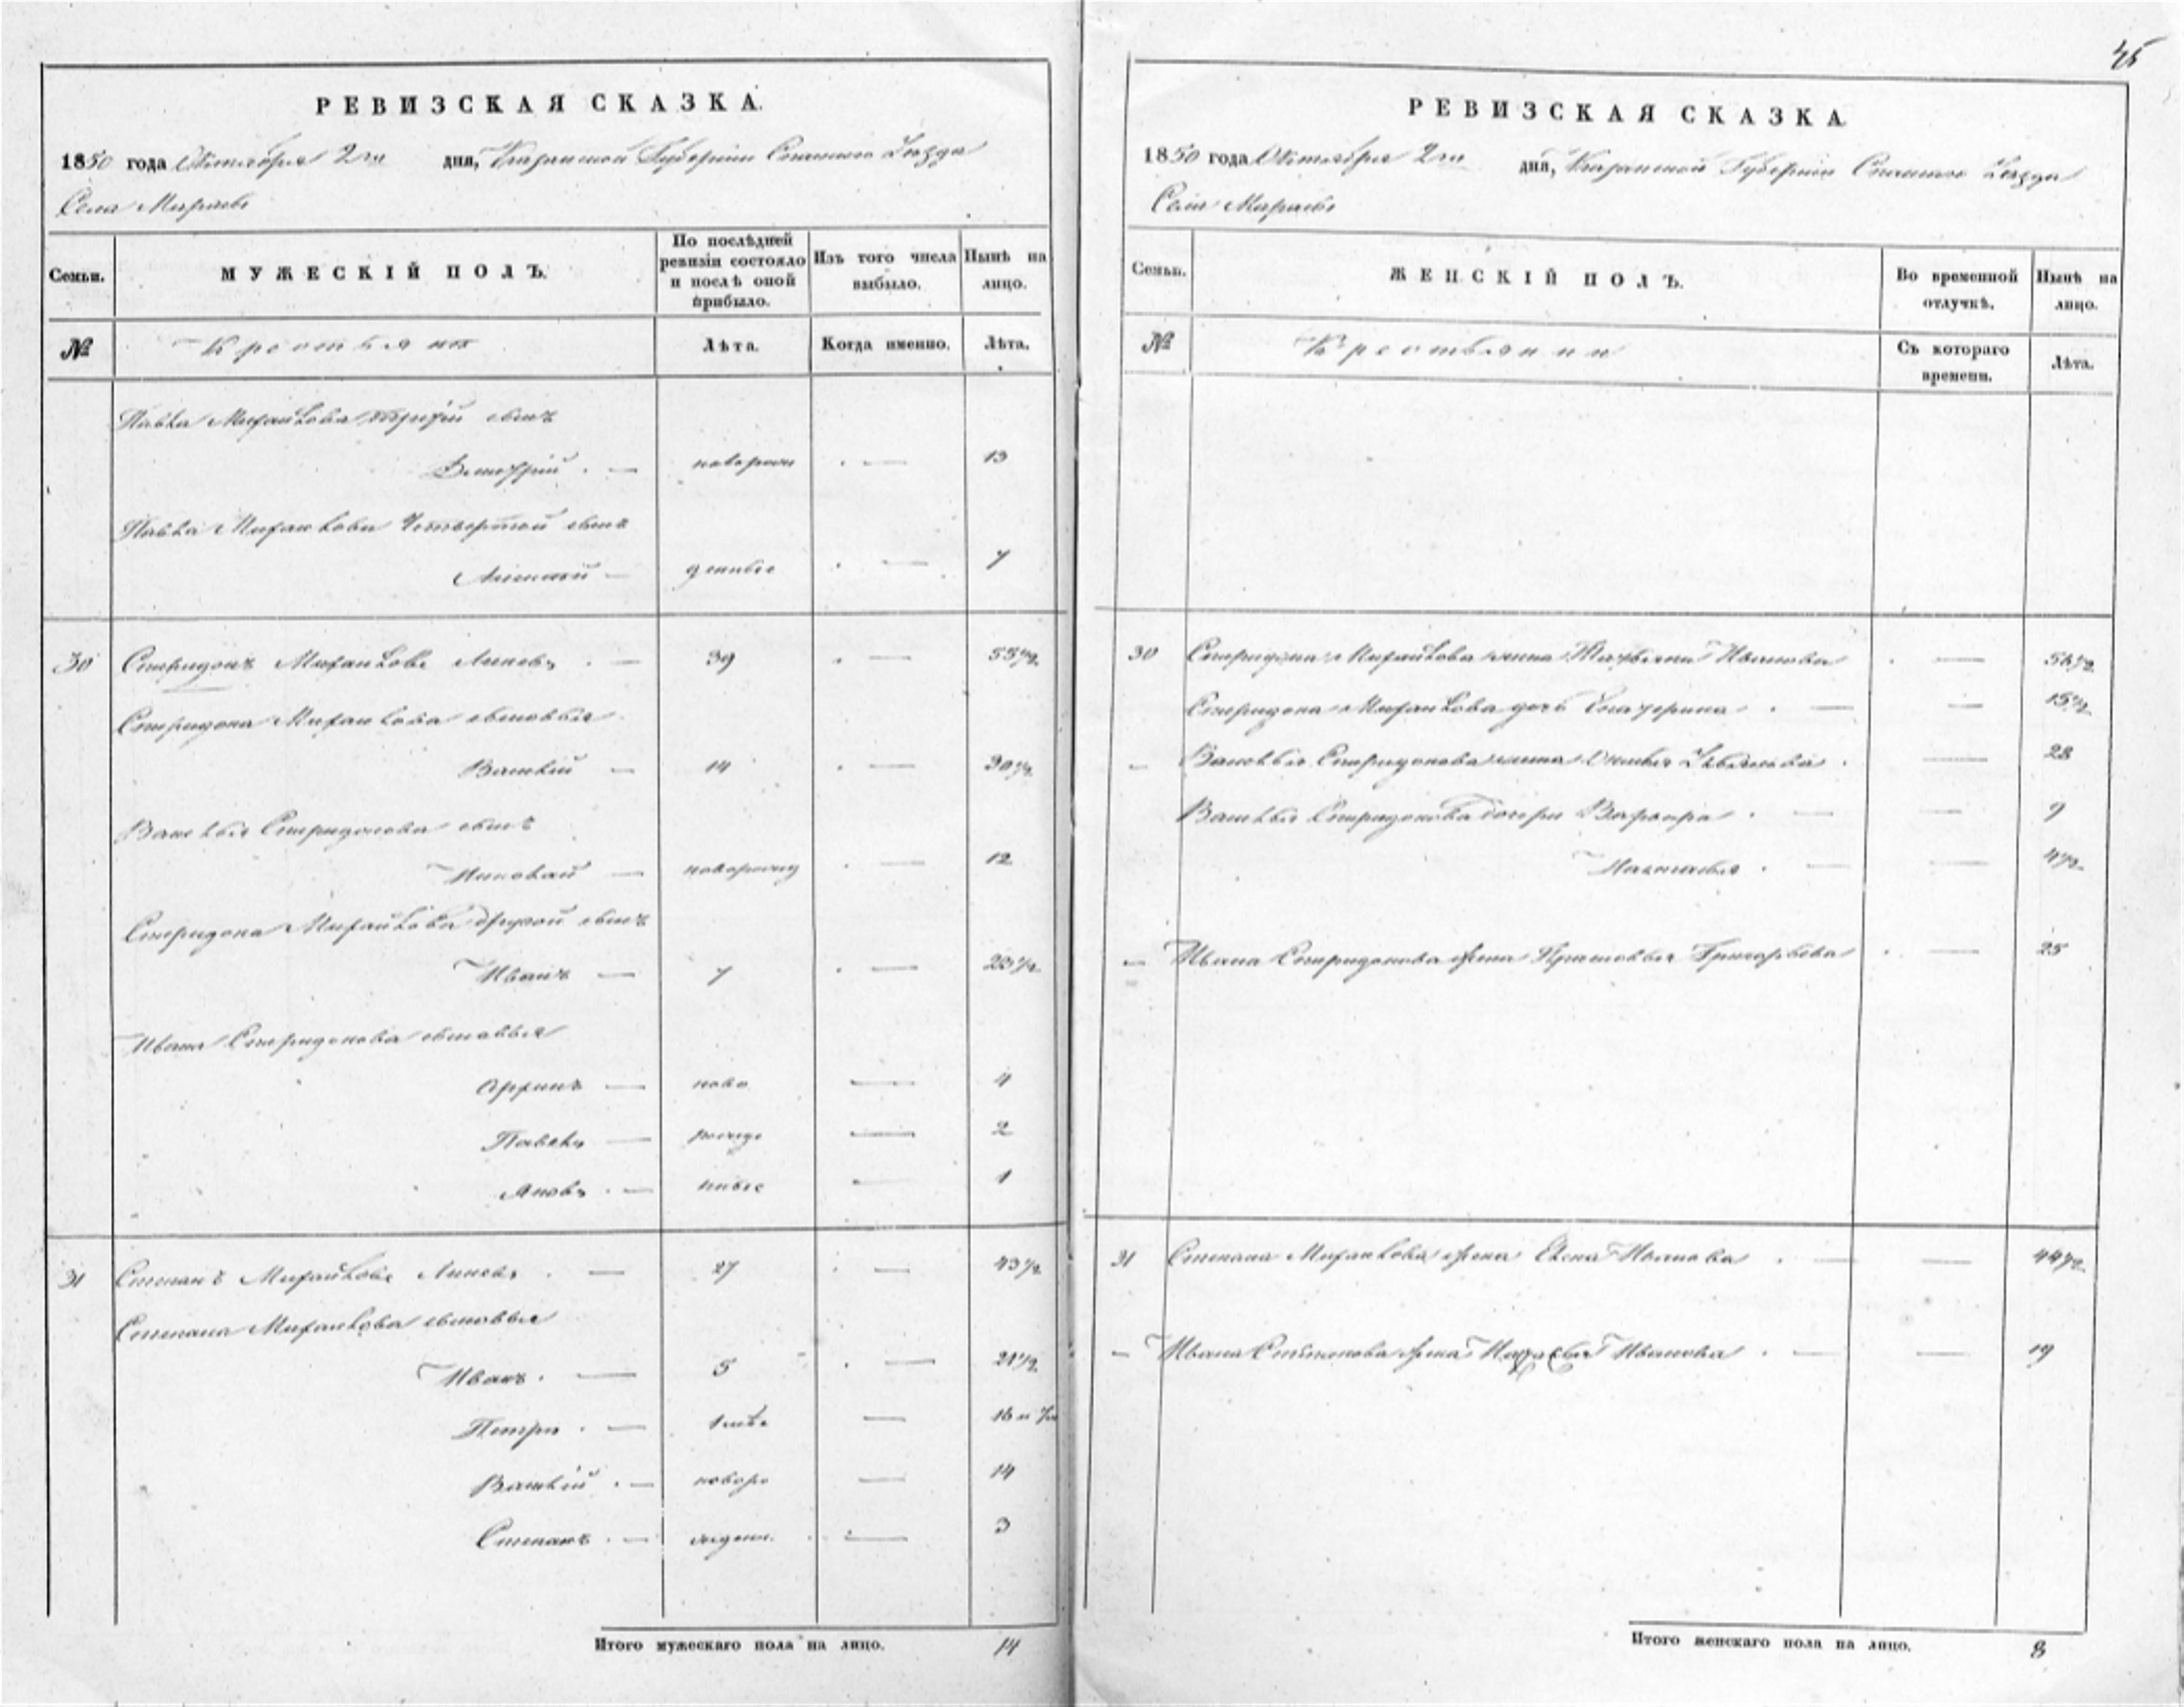 РЕВИЗСКАЯ СКАЗКА.
1850 года Октября 2го дня, Казанской Губернии Спасского Уѣзда
Села
Семьи.
МУЖЕСКІЙ ПОЛЪ.
По послѣдней ревизіи состояло и послѣ оной прибыло.
Изъ того числа выбыло.
Нынѣ на лицо.
№
Крестьяне
Лѣта.
Когда именно.
Лѣта.
Павла Михайлова третій сынъ
Дмитрій . — новорож . — 13
Павла Михайлова Четвертой сынъ
Алексѣй — денные . — 7
30 Спиридонъ Михайловъ . — 39 . — 55½
Спиридона Михайлова сыновья
Василій — 14 . — 30½
Василья Спиридонова сынъ
Николай — новорожд . — 12
Спиридона Михайлова другой сынъ
Иванъ — 7 . — 23½
Ивана Спиридонова сыновья
— ново — 4
Павелъ — рожде — 2
Яковъ . — нные — 1
31 Степанъ Михайловъ . — 27 . — 43½
Степана Михайлова сыновья
Иванъ . — 5 . — 21½
Петръ . — — 16
Василій . — новоро — 14
Степанъ . — жден. — 3
Итого мужескаго пола на лицо. 14
45
РЕВИЗСКАЯ СКАЗКА
1850 года Октября 2го дня, Казанской Губерніи Спасского Уѣзда
Села
Семьи.
ЖЕНСКІЙ ПОЛЪ.
Во временной отлучкѣ.
Нынѣ на лицо.
№
Крестьянки
Съ котораго времени.
Лѣта.
30 Спиридона Михайлова жена Иванова . —
Спиридона Михайлова дочь Екатерина . — — 15½
Василья Спиридонова жена . — 28
Василья Спиридонова дочери Варвара . — — 9
Настасья . — — 4½
Ивана Спиридонова жена Прасковья Григорьева . — 25
31 Степана Михайлова жена Елена Иванова . — — 44½
Ивана Степанова жена Иванова . — — 19
Итого женскаго пола на лицо. 8